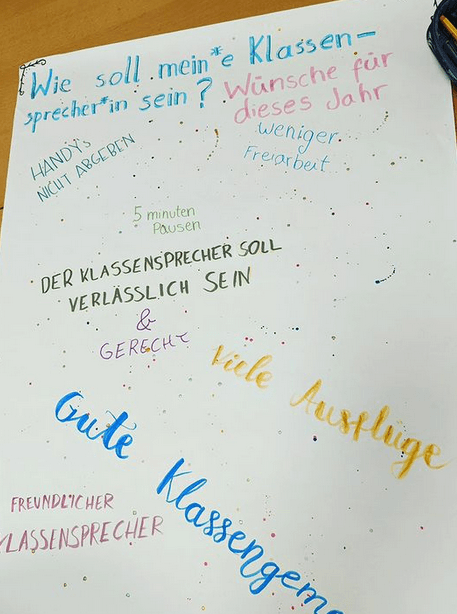 Wie soll mein*e Klassen-
sprecher*in sein?
Wünsche für
dieses Jahr
weniger
Freiarbeit
HANDYs
NICHT ABGEBEN
5 minuten
Pausen
DER KLASSENSPRECHER SOLL
VERLÄSSLICH SEIN
&
GERECHT
Viele Ausflüge
Gute Klassengeme
FREUNDLICHER
KLASSENSPRECHER